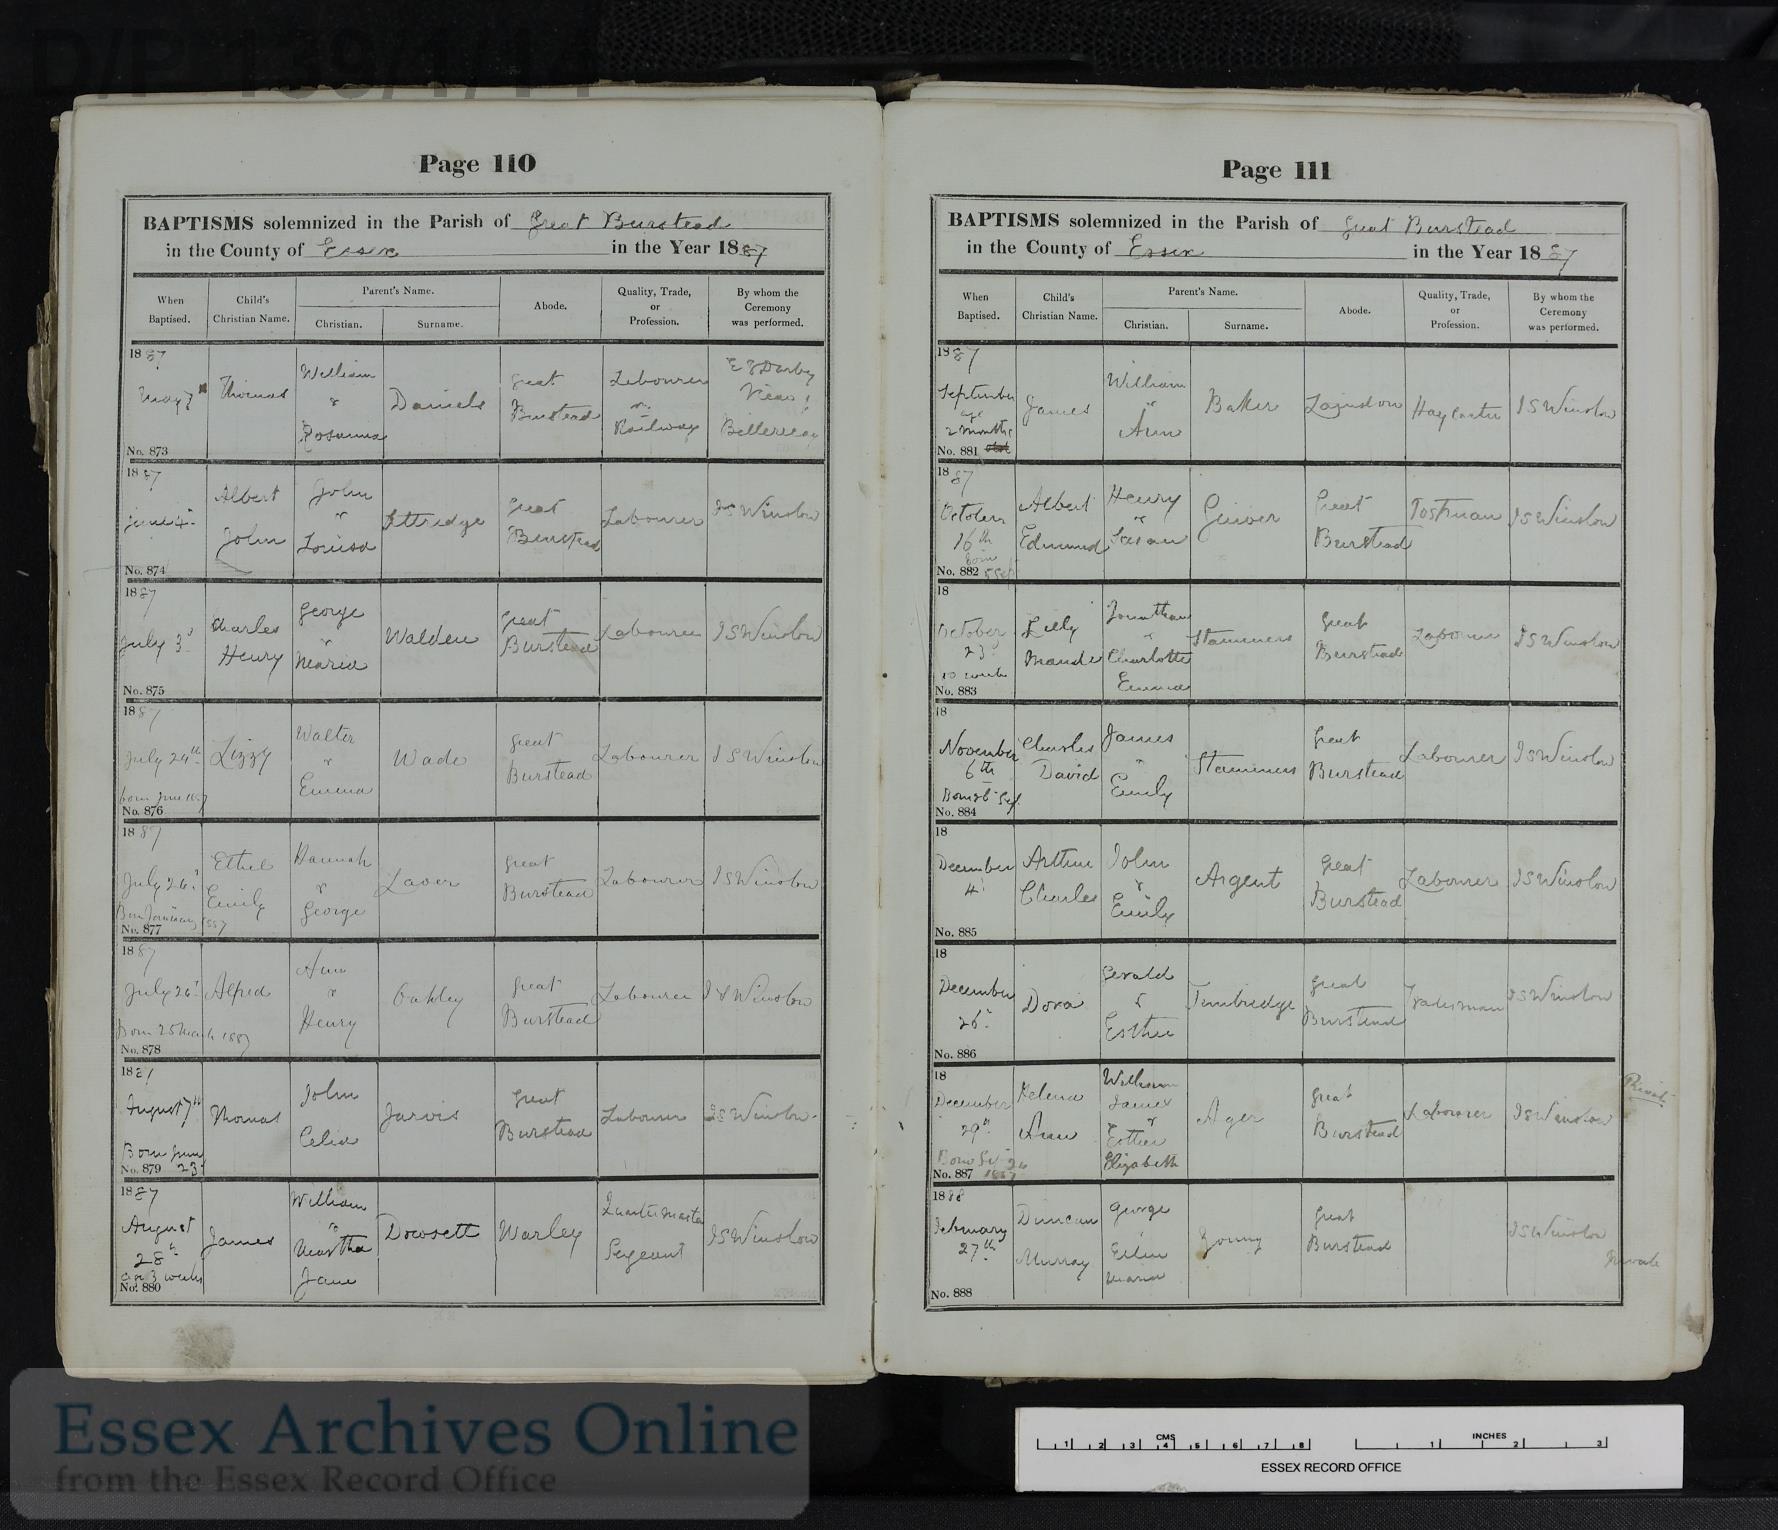 D/P 139/1/14
Page 110
BAPTISMS solemnized in the Parish of Great Burstead
in the County of Essex in the Year 1887
When Baptised. Child's Christian Name. Parent's Name. Christian. Surname. Abode. Quality, Trade, or Profession. By whom the Ceremony was performed.
1887
May 7 Thomas William & Rosanna Daniels Great Burstead Labourer on Railway Vicar Billericay
No. 873
1887
June 4 Albert John John & Louisa Ettridge Great Burstead Labourer JS Winslow
No. 874
1887
July 3d Charles Henry George & Maria Walden Great Burstead Labourer JS Winslow
No. 875
1887
July 24th Lizzy Walter & Emma Wade Great Burstead Labourer JS Winslow
born June 1887
No. 876
1887
July 26 Ethel Emily Hannah & George Laver Great Burstead Labourer JS Winslow
Born January 1887
No. 877
1887
July 26 Alfred Ann & Henry Oakley Great Burstead Labourer JS Winslow
Born 25 March 1887
No. 878
1887
August 7th Thomas John Celia Jarvis Great Burstead Labourer JS Winslow
Born June 23
No. 879
1887
August 28th James William & Martha Jane Dowsett Warley Quarter Master Sergeant JS Winslow
age 3 weeks
No. 880
Page 111
BAPTISMS solemnized in the Parish of Great Burstead
in the County of Essex in the Year 1887
When Baptised. Child's Christian Name. Parent's Name. Christian. Surname. Abode. Quality, Trade, or Profession. By whom the Ceremony was performed.
1887
September James William & Ann Baker Laindon Hay Carter JS Winslow
age 2 months
No. 881
1887
October 16th Albert Edmund Henry & Susan Guiver Great Burstead Postman JS Winslow
born 5 Sep
No. 882
18
October 23d Lilly Maude Jonathan & Charlotte Emma Stammers Great Burstead Labourer JS Winslow
10 weeks
No. 883
18
November 6th Charles David James & Emily Stammers Great Burstead Labourer JS Winslow
Born 26 Sep
No. 884
18
December 4 Arthur Charles John & Emily Argent Great Burstead Labourer JS Winslow
No. 885
18
December 26 Dora Gerald & Esther Timbridge Great Burstead Tradesman JS Winslow
No. 886
18
December 29th Helena Ann William James & Esther Elizabeth Ager Great Burstead Labourer JS Winslow Private
Born 26 1887
No. 887
1888
February 27th Duncan Murray George Eilen Maria Young Great Burstead JS Winslow Private
No. 888
Essex Archives Online
from the Essex Record Office
CMS
1 2 3 4 5 6 7 8
INCHES
1 2 3
ESSEX RECORD OFFICE